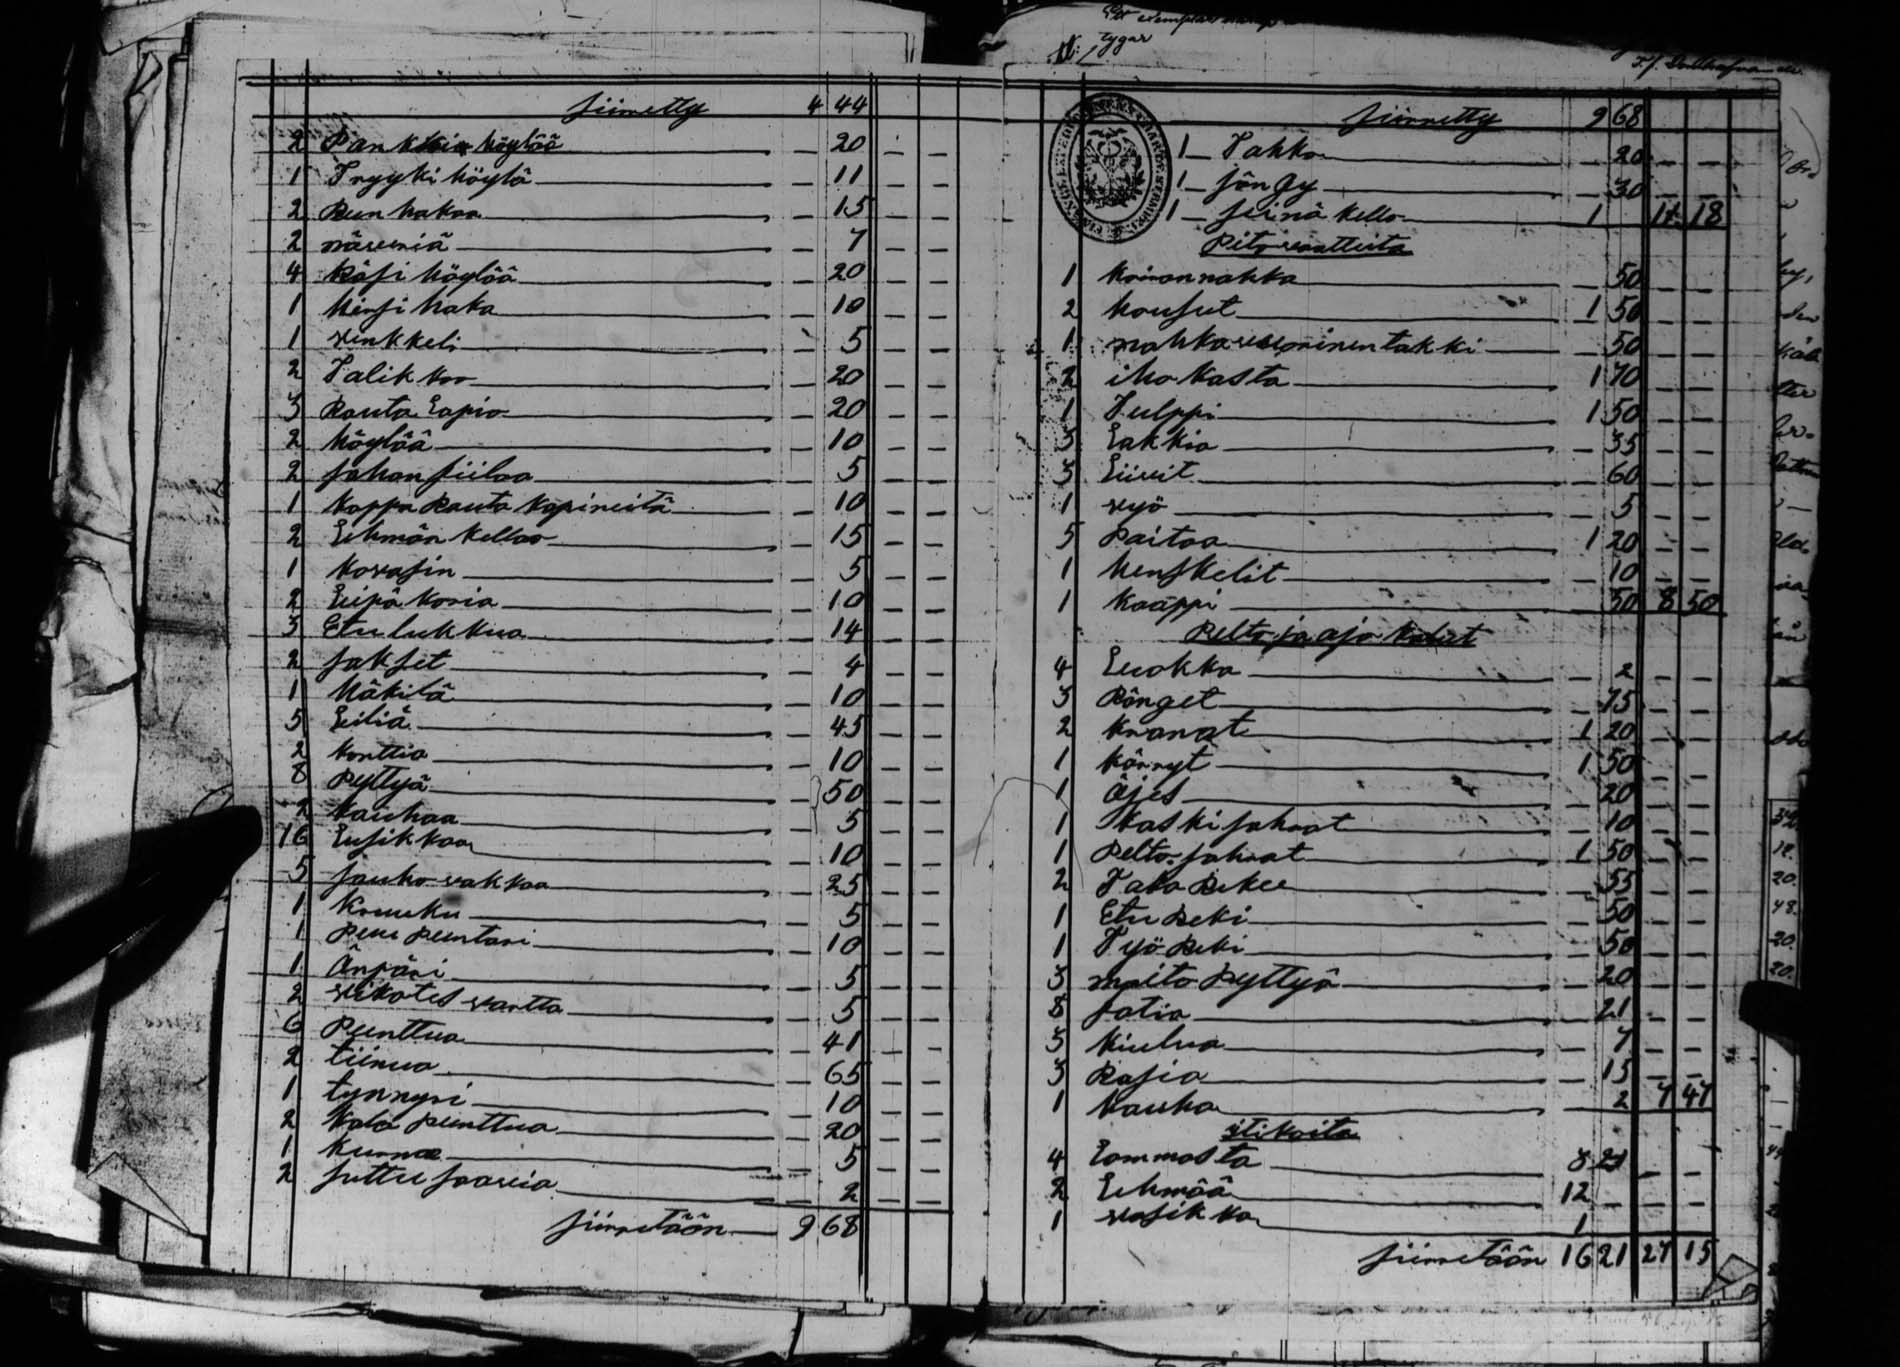 siirretty 4 44
2 Pankkia höylää — 20 — —
1 Tryyki höylä — 11 — —
2 Puu hakaa — 15 — —
2 näveriä — 7 — —
4 Käsi höylää — 20 — —
1 hirsi haka — 10 — —
1 vinkkeli — 5 — —
2 Talikkoo — 20 — —
3 Rauta Lapio — 20 — —
2 höylää — 10 — —
2 sahan fiilaa — 5 — —
1 kappa Rauta kapineita — 10 — —
2 Lehmän kelloo — 15 — —
1 kovasin — 5 — —
2 Leipä koria — 10 — —
3 Etu lukkua — 14 — —
2 sakset — 4 — —
1 häkilä — 10 — —
5 Leiliä — 45 — —
2 konttia — 10 — —
8 Pyttyä — 50 — —
2 kauhaa — 5 — —
16 Lusikkaa — 10 — —
5 jauho vakkaa — 25 — —
1 kruuku — 5 — —
1 Puu puntari — 10 — —
1 Änpäri — 5 — —
2 vikates vartta — 5 — —
6 Punttua — 41 — —
2 tiinua — 65 — —
1 tynnyri — 10 — —
2 kala punttua — 20 — —
1 kurna — 5 — —
2 juttu saavia — 2 — —
siirretään 9 68
siirretty 9 68
1 — Tahko — 20 — —
1 — sängy — 30 — —
1 — seinä kello 1 11 18
Pito vaatteita
1 koirannahka — 50 — —
2 housut 1 50 — —
1 nahka verninen takki — 50 — —
2 iho kasta 1 70 — —
1 Tulppi 1 50 — —
3 Lakkia — 35 — —
3 Liivit — 60 — —
1 vyö — 5 — —
5 Paitaa 1 20 — —
1 henskelit — 10 — —
1 kaappi 50 8 50
Pelto ja ajo kalut
4 Luokka — 2 — —
3 Länget — 75 — —
2 kranat 1 20 — —
1 kärryt 1 50 — —
1 äjes — 20 — —
1 kaski sahrat — 10 — —
1 Pelto sahrat 1 50 — —
2 Tala Rekee — 55 — —
1 Etu Reki — 50 — —
1 Työ Reki — 50 — —
3 maito Pyttyä — 20 — —
8 fatia — 21 — —
3 kiulua — 7 — —
3 Rasia — 15 — —
1 kauha — 2 7 47
itikoita
4 Lammasta 3 21 — —
2 Lehmää 12 — —
1 vasikka 1
siirretään 16 21 27 15